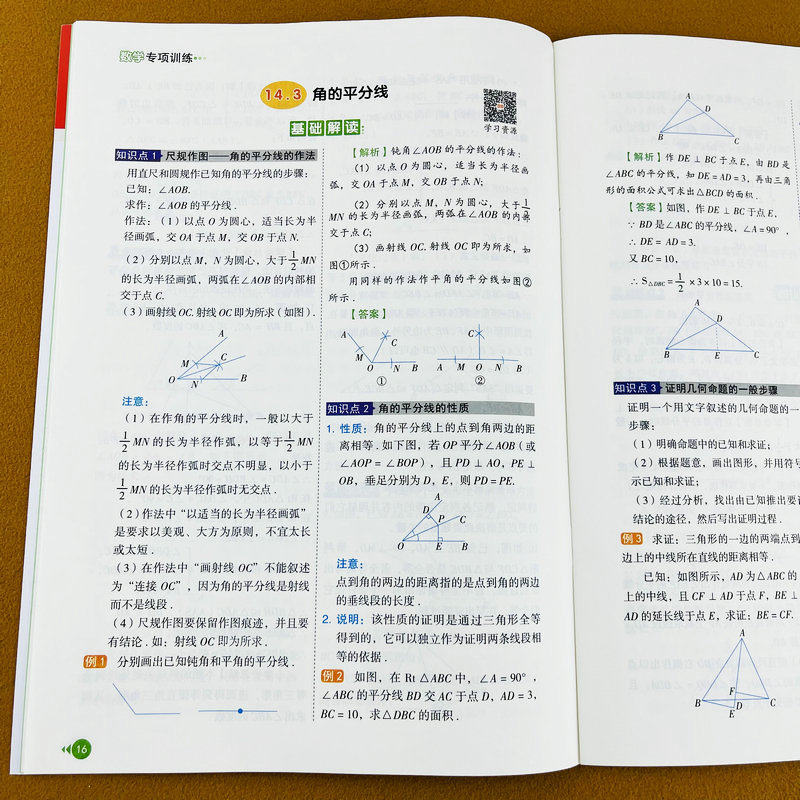 数学专项训练
14.3 角的平分线
学习资源
基础解读:
知识点 1 尺规作图——角的平分线的作法
用直尺和圆规作已知角的平分线的步骤:
已知:∠AOB.
求作:∠AOB的平分线.
作法:(1)以点O为圆心,适当长为半
径画弧,交OA于点M,交OB于点N.
(2)分别以点M,N为圆心,大于1/2MN
的长为半径画弧,两弧在∠AOB的内部相
交于点C.
(3)画射线OC.射线OC即为所求(如图).
A
M
C
O
N
B
注意:
(1)在作角的平分线时,一般以大于
1/2MN的长为半径作弧,以等于1/2MN
的长为半径作弧时交点不明显,以小于
1/2MN的长为半径作弧时无交点.
(2)作法中“以适当的长为半径画弧”
是要求以美观、大方为原则,不宜太长
或太短.
(3)在作法中“画射线OC”不能叙述
为“连接OC”,因为角的平分线是射线
而不是线段.
(4)尺规作图要保留作图痕迹,并且要
有结论.如:射线OC即为所求.
例1 分别画出已知钝角和平角的平分线.
16
【解析】钝角∠AOB的平分线的作法:
(1)以点O为圆心,适当长为半径画
弧,交OA于点M,交OB于点N;
(2)分别以点M,N为圆心,大于1/2
MN的长为半径画弧,两弧在∠AOB的内部
交于点C;
(3)画射线OC.射线OC即为所求,如
图①所示.
用同样的作法作平角的平分线如图②
所示.
【答案】
A
C
M
O N B
①
C
A M O N B
②
知识点 2 角的平分线的性质
1. 性质:角的平分线上的点到角两边的距
离相等.如下图,若OP平分∠AOB(或
∠AOP=∠BOP),且PD⊥AO,PE⊥
OB,垂足分别为D,E,则PD=PE.
A
D
P
C
O E B
注意:
点到角的两边的距离指的是点到角的两边
的垂线段的长度.
2. 说明:该性质的证明是通过三角形全等
得到的,它可以独立作为证明两条线段相
等的依据.
例2 如图,在Rt△ABC中,∠A=90°,
∠ABC的平分线BD交AC于点D,AD=3,
BC=10,求△DBC的面积.
A
D
B C
【解析】作DE⊥BC于点E,由BD是
∠ABC的平分线,知DE=AD=3,再由三角
形的面积公式可求出△BCD的面积.
【答案】如图,作DE⊥BC于点E.
∵BD是∠ABC的平分线,∠A=90°,
∴DE=AD=3.
又BC=10,
∴S△DBC=1/2×3×10=15.
A
D
B E C
知识点 3 证明几何命题的一般步骤
证明一个用文字叙述的几何命题的一
步骤:
(1)明确命题中的已知和求证;
(2)根据题意,画出图形,并用符号
示已知和求证;
(3)经过分析,找出由已知推出要证
结论的途径,然后写出证明过程.
例3 求证:三角形的一边的两端点到
边上的中线所在直线的距离相等.
已知:如图所示,AD为△ABC的
上的中线,且CF⊥AD于点F,BE⊥
AD的延长线于点E,求证:BE=CF.
A
F
B D C
E